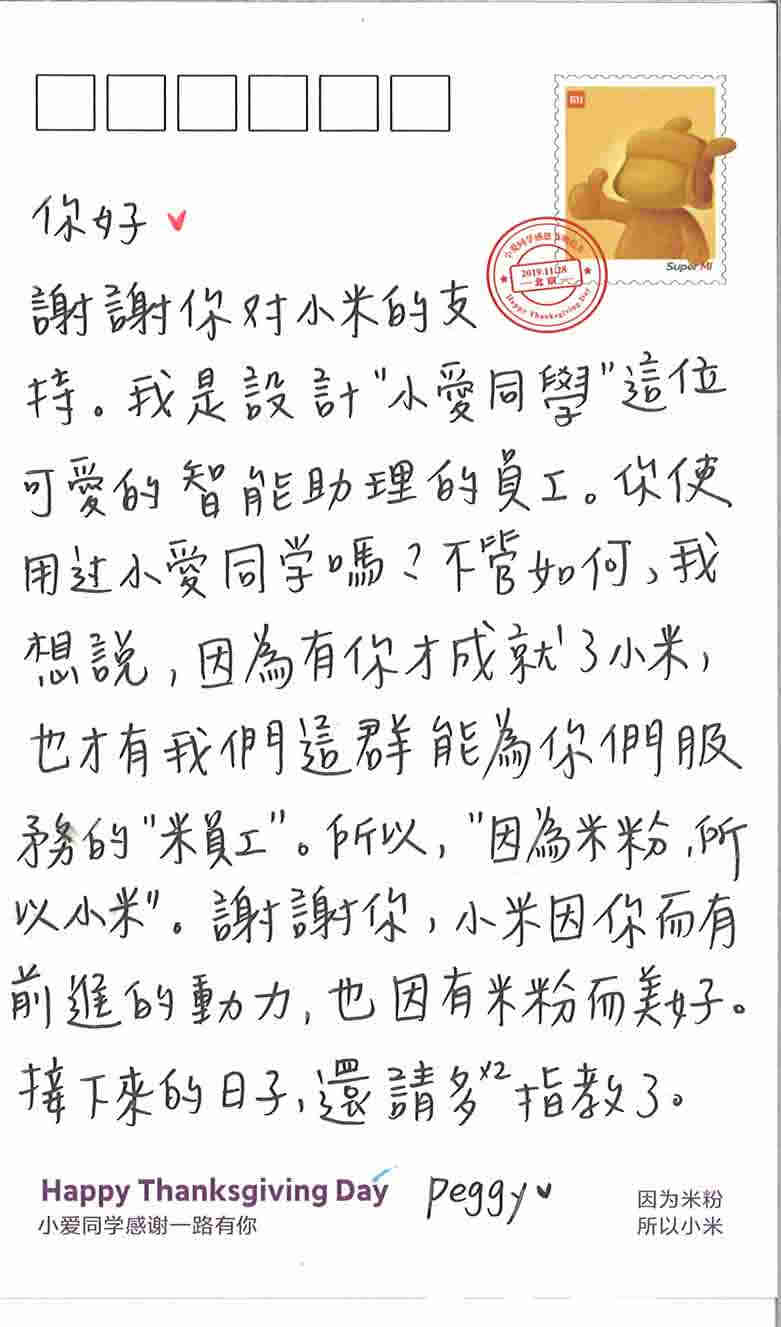 MI
Super Mi
小爱同学感恩
2019.11.28
北京
Happy Thanksgiving Day
你好
謝謝你对小米的支
持。我是設計"小愛同學"這位
可愛的智能助理的員工。你使
用过小愛同学嗎？不管如何，我
想說，因為有你才成就了小米，
也才有我們這群能為你們服
務的"米員工"。所以，"因為米粉，所
以小米"。謝謝你，小米因你而有
前進的動力，也因有米粉而美好。
接下來的日子，還請多x2指教了。
Happy Thanksgiving Day
小爱同学感谢一路有你
Peggy
因为米粉
所以小米